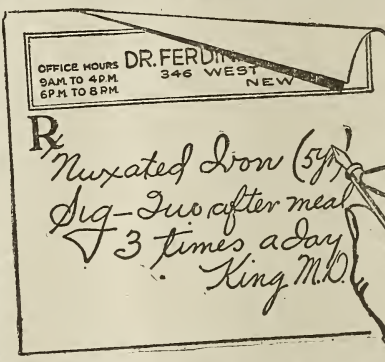 OFFICE HOURS
9 A.M. TO 4 P.M.
6 P.M. TO 8 P.M.
DR. FERDIN
346 WEST
NEW
Rx
Nuxated Iron (5gr)
Sig - Two after meal
3 times a day
King M.D.